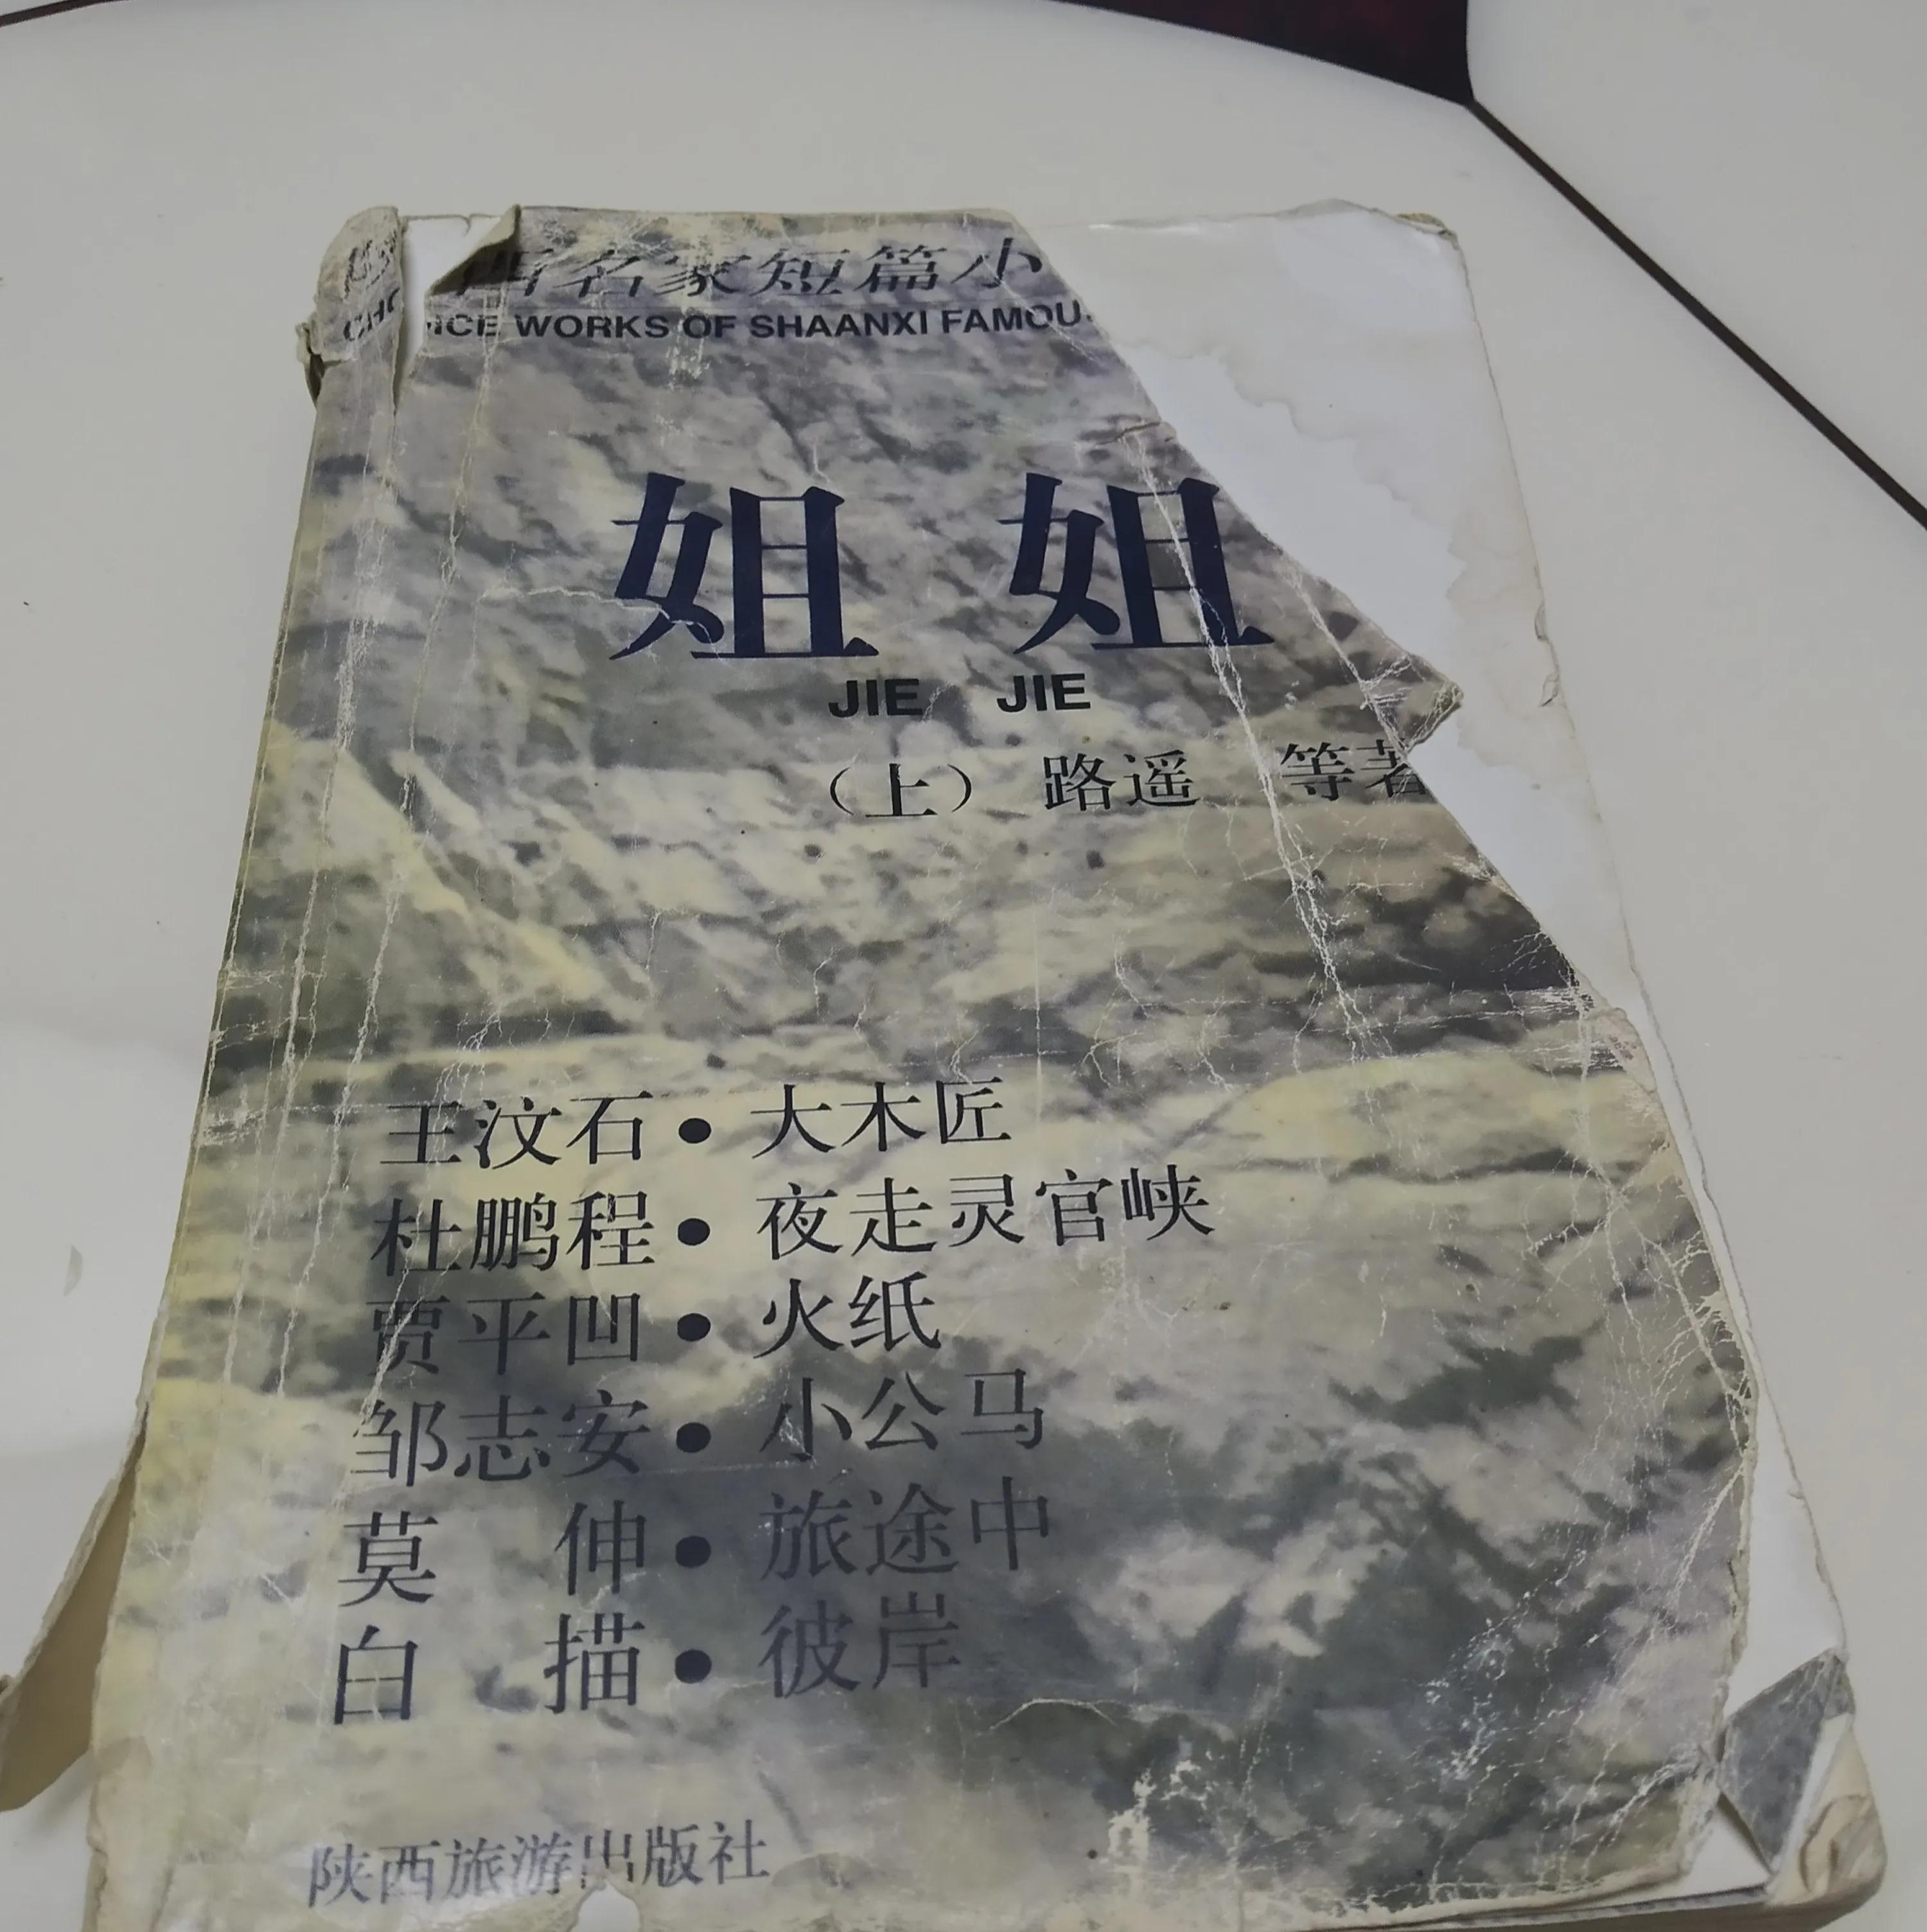 西名家短篇小
CHOICE WORKS OF SHAANXI FAMOU
姐 姐
JIE JIE
（上） 路遥 等著
王汶石·大木匠
杜鹏程·夜走灵官峡
贾平凹·火纸
邹志安·小公马
莫 伸·旅途中
白 描·彼岸
陕西旅游出版社